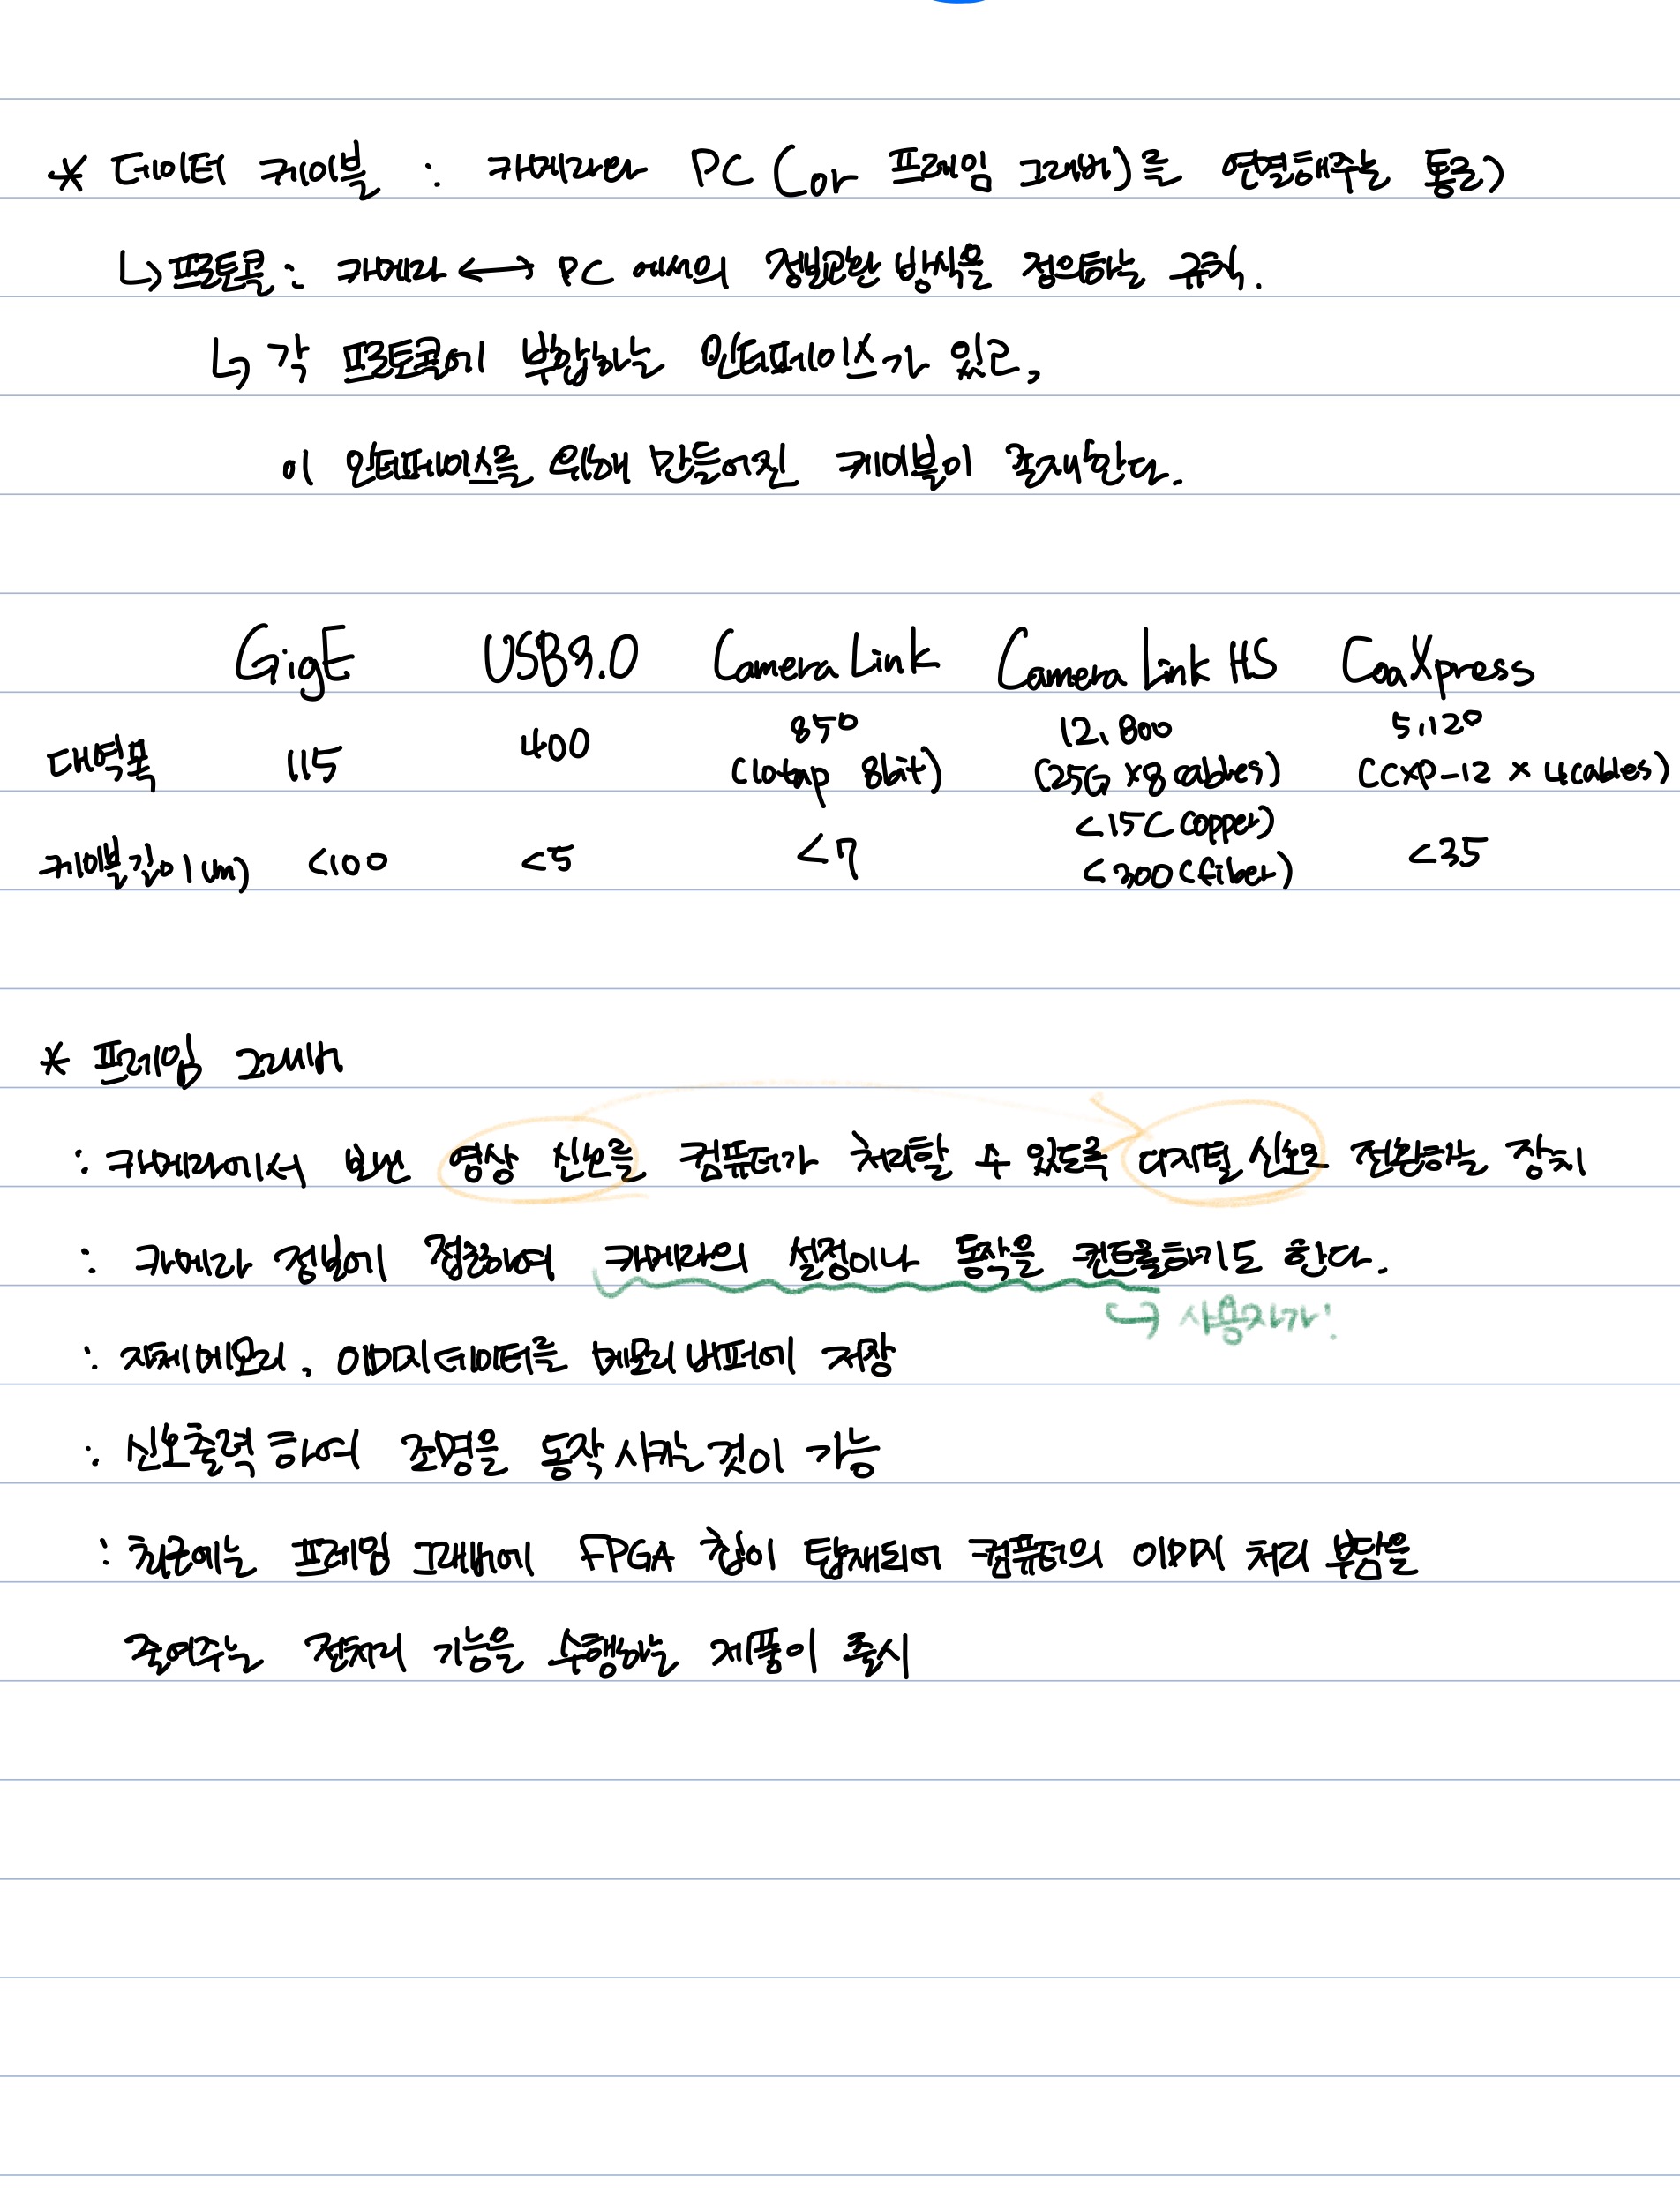 * 데이터 케이블 : 카메라와 PC (or 프레임 그래버)를 연결해주는 통로
↳ 프로토콜 : 카메라 ↔ PC 에서의 정보교환 방식을 정의하는 규칙.
↳ 각 프로토콜에 부합하는 인터페이스가 있고,
이 인터페이스를 위해 만들어진 케이블이 존재한다.
GigE USB3.0 Camera Link Camera Link HS CoaXpress
대역폭 115 400 850 12,800 5,120
(10tap 8bit) (25G x8 cables) (CXP-12 x 4cables)
케이블 길이 (m) <100 <5 <7 <15 (copper) <35
<300 (fiber)
* 프레임 그래버
: 카메라에서 보낸 영상 신호를 컴퓨터가 처리할 수 있도록 디지털 신호로 전환하는 장치
: 카메라 정보에 접근하여 카메라의 설정이나 동작을 컨트롤하기도 한다.
↪ 사용자가!
: 자체메모리, 이미지데이터를 메모리 버퍼에 저장
: 신호출력 하여 조명을 동작 시키는 것이 가능
: 최근에는 프레임 그래버에 FPGA 칩이 탑재되어 컴퓨터의 이미지 처리 부담을
줄여주는 전처리 기능을 수행하는 제품이 출시